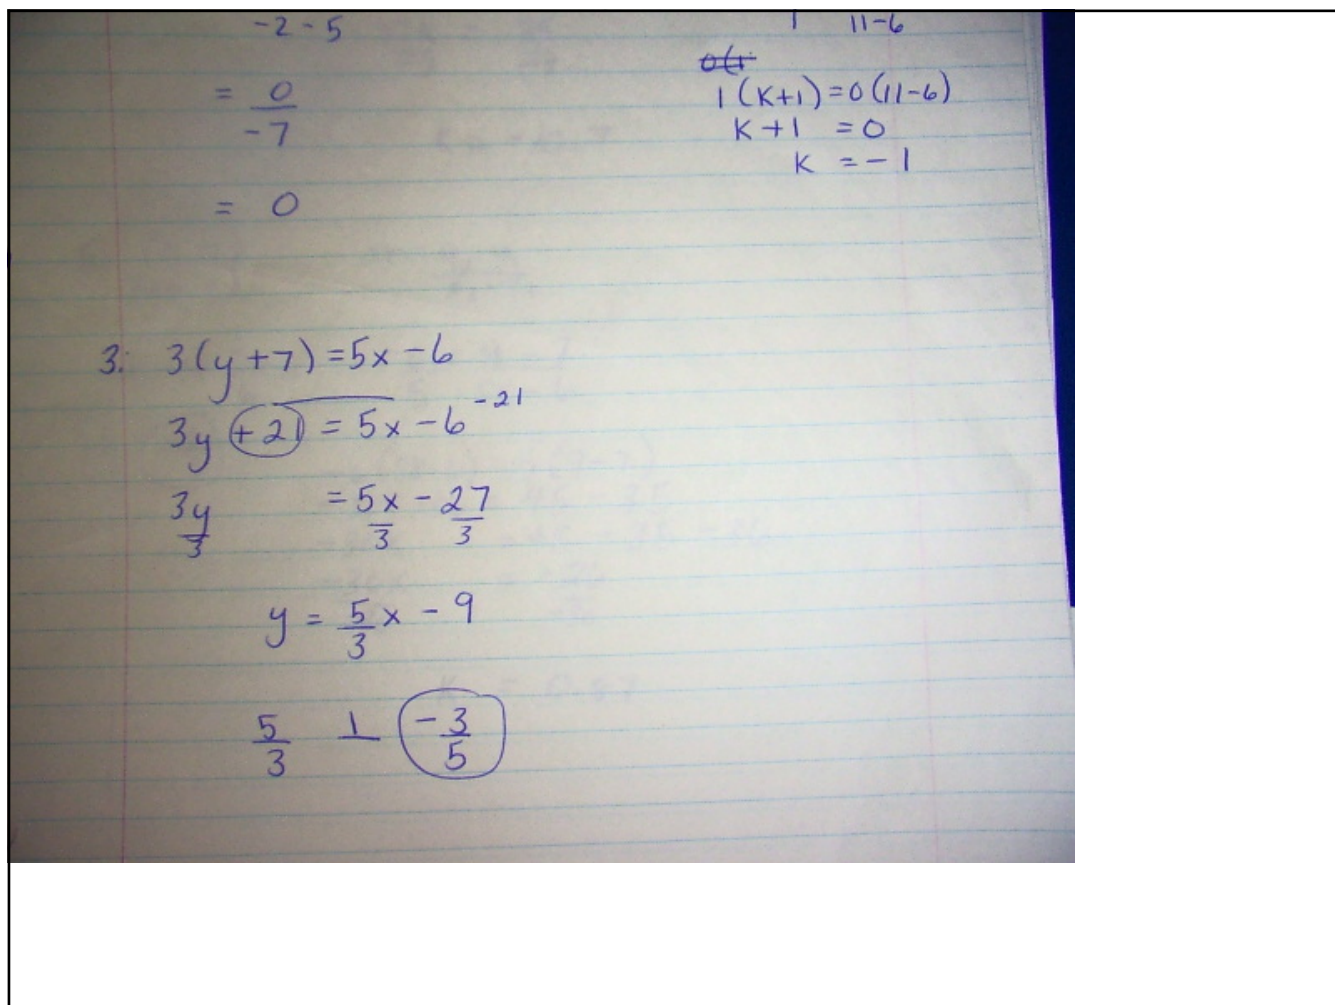 -2 - 5
= 0/-7
= 0
1 11-6
1(K+1)=0(11-6)
K+1 =0
K =-1
3. 3(y+7)=5x-6
3y +21 = 5x-6 -21
3y/3 =5x/3 - 27/3
y = 5/3 x - 9
5/3 ⊥ -3/5